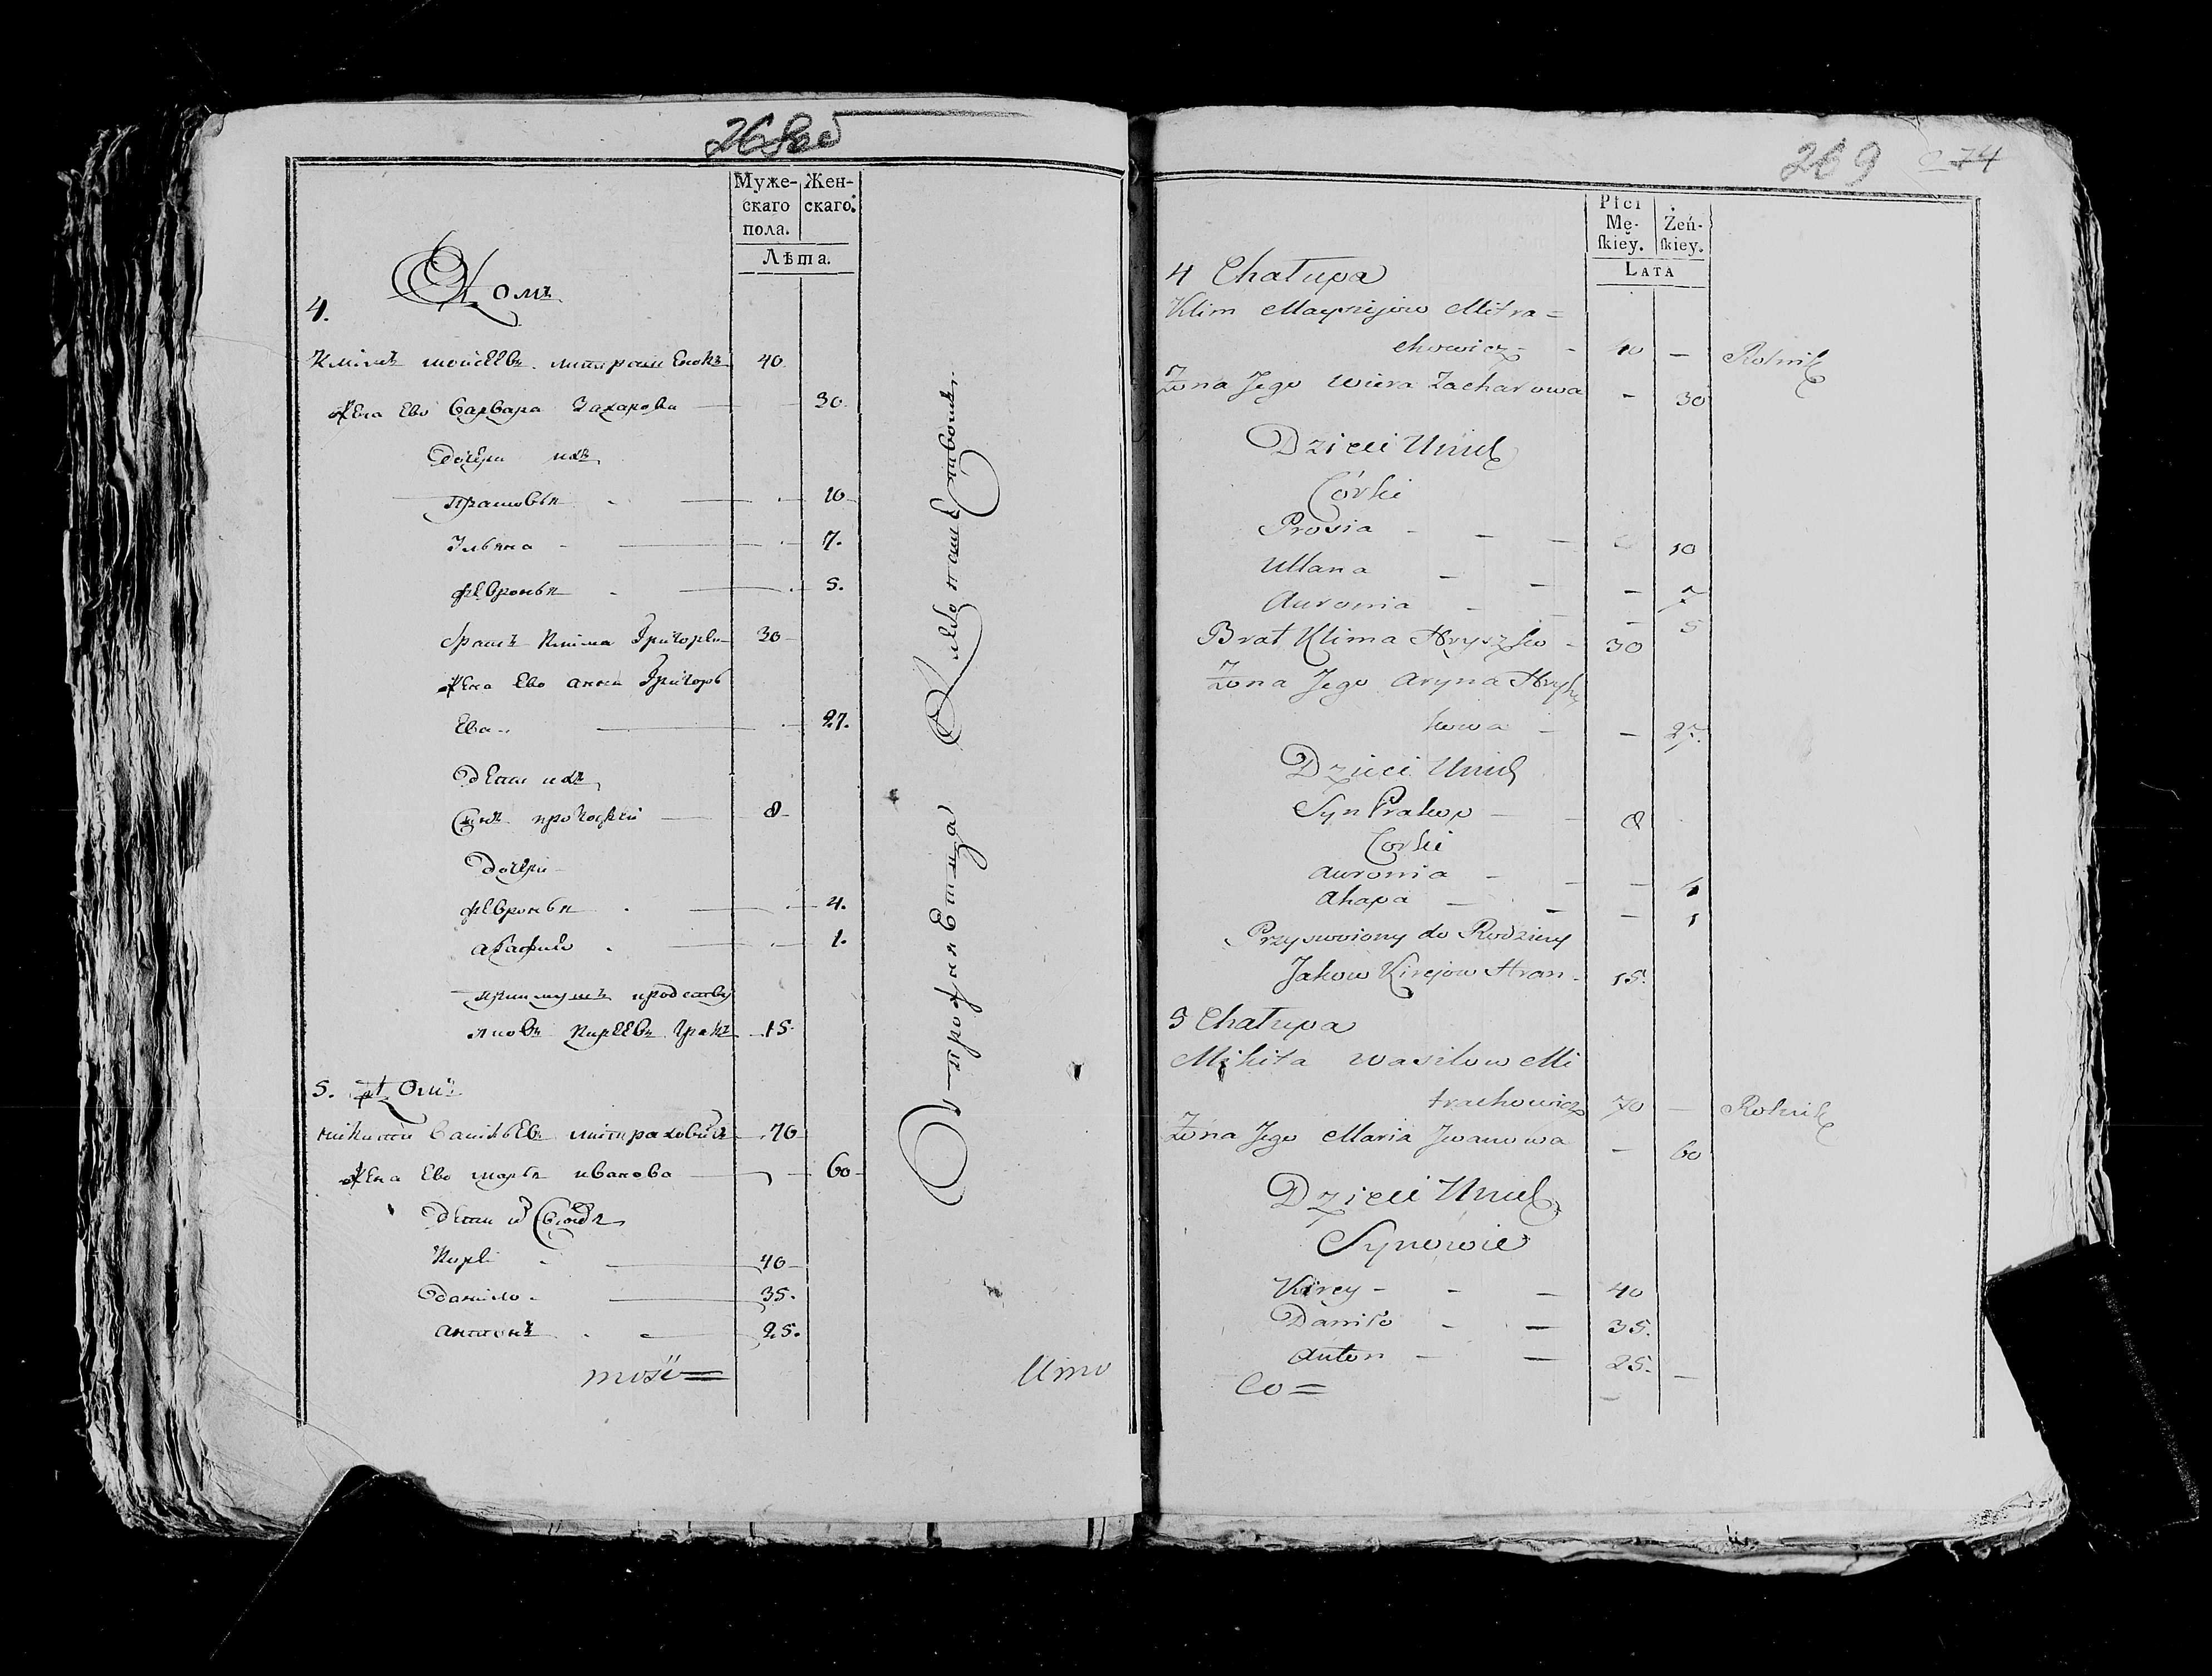 268об
Муже-
скаго
пола.
Жен-
скаго.
Лѣта.
4. Домъ
Климъ Моисеевъ Митрашенокъ 40.
Жена Ево Варвара Захарова 30.
Дочери ихъ
Прасковья 10
Ульяна 7.
Февронья 5.
братъ Клима Григореи 30
Жена Ево анна Григорь
Ева 27.
Дети ихъ
Сынъ прокофей 8
Дочери
Февронья 4.
агафия 1.
Яковъ Киреевъ Гранъ 15.
5. Домъ
никита Васильевъ митраховичъ 70
Жена Ево марья иванова 60
Дети
Кирей 40
Данило 35.
антонъ 25.
Пропитаетца Хлебопашествомъ
269 274
Płci
Mę-
ſkiey.
Żeń-
ſkiey.
LATA
4 Chałupa
Klim Mayziejow Mitra=
chowicz - - 40 — Rolnik
Żona Jego Wiera Zacharowa - 30
Dzieci Unich
Córki
Prosia - - - 10
Ullana - - - 7
Auronia - - - 5
Brat Klima Hryszko - 30
Żona Jego Aryna Hrysz
kowa - - 27.
Dzieci Unich
Syn Prakop - - 8
Corki
Auronia - - - 4
Ahapa - - - 1
Przyswoiony do Rodziny
Jakow Kirejow Hran - 15.
5 Chałupa
Mikita Wasilow Mi
trachowicz 70 — Rolnik
Żona Jego Maria Jwanowa - 60
Dzieci Unich
Synowie
Kirey - - - 40
Daniło - - 35.
Anton - - 25. -
Co=